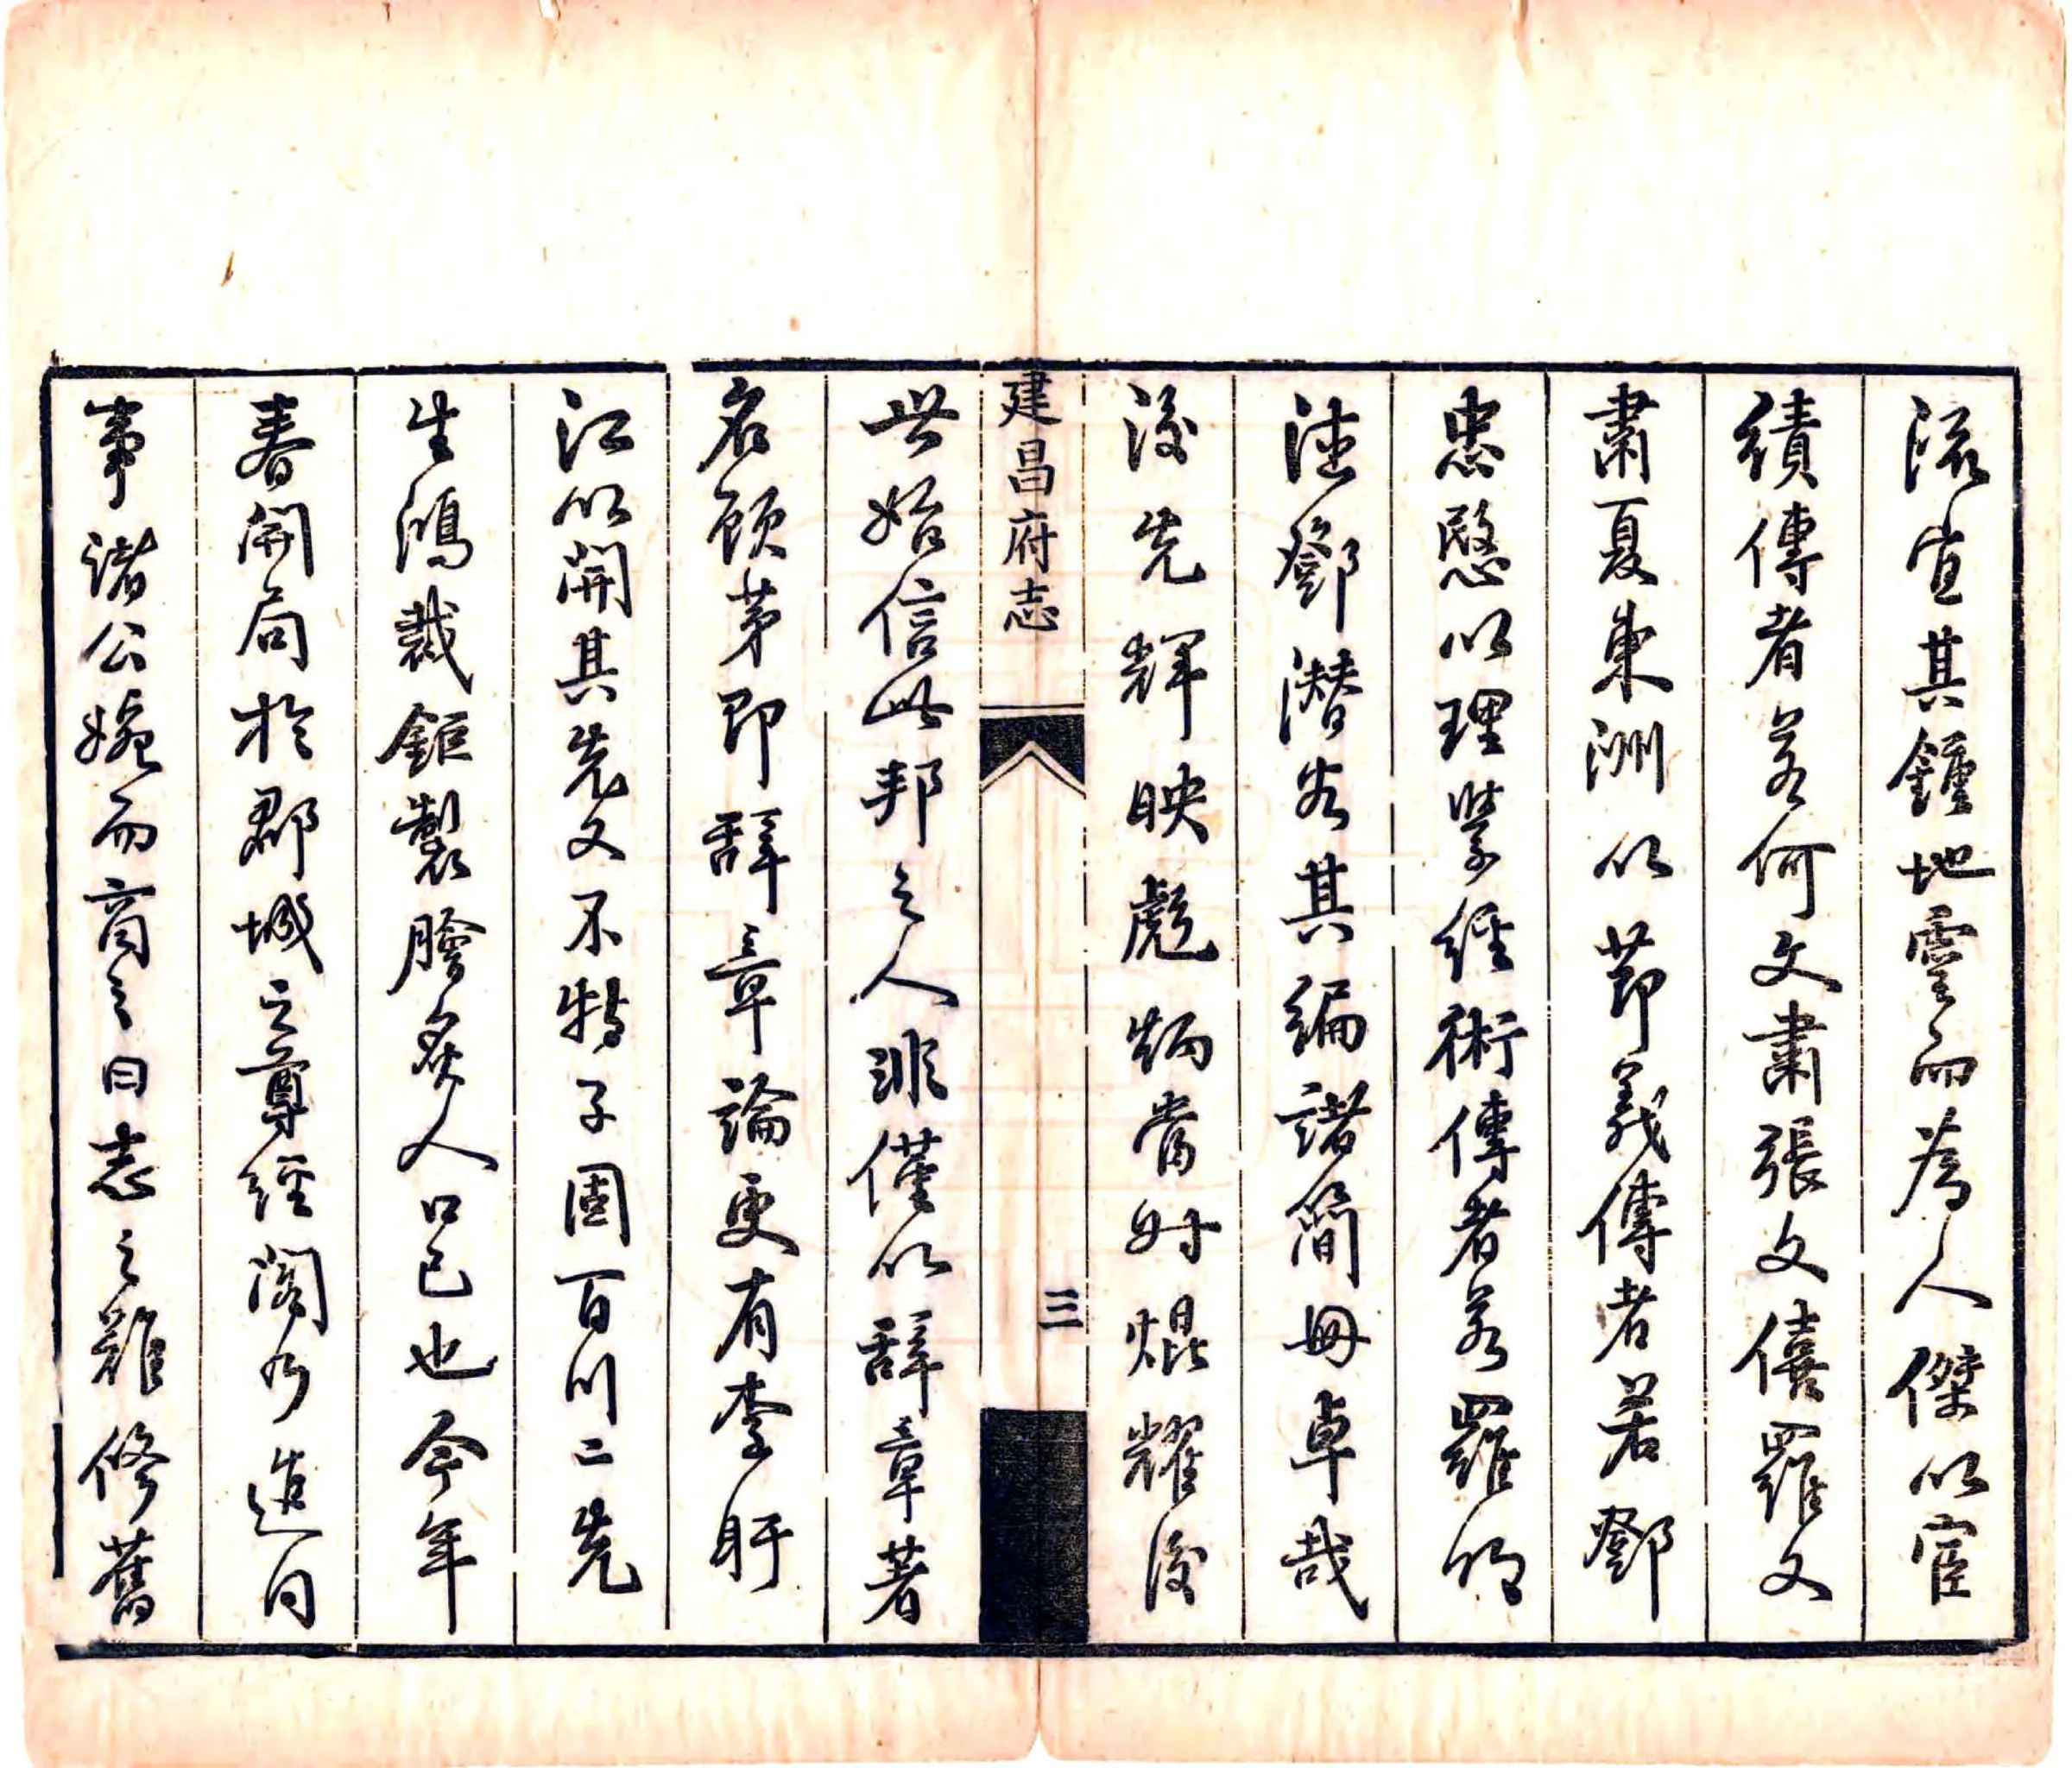 流宜其鍾地靈而為人傑以宦
績傳者若何文肅張文僖羅文
肅夏東洲以節義傳者若鄧
忠愍以理學經術傳者若羅明
德鄧潛谷其編諸簡冊卓哉
後先輝映彪炳當時焜耀後
建昌府志
三
世始信此邦之人非僅以辭章著
名顧第即辭章論更有李盱
江以開其先又不特子固百川二先
生鴻裁鉅製膾炙人口已也今年
春開局於郡城之尊經閣乃造同
事諸公婉而商之曰志之難修舊